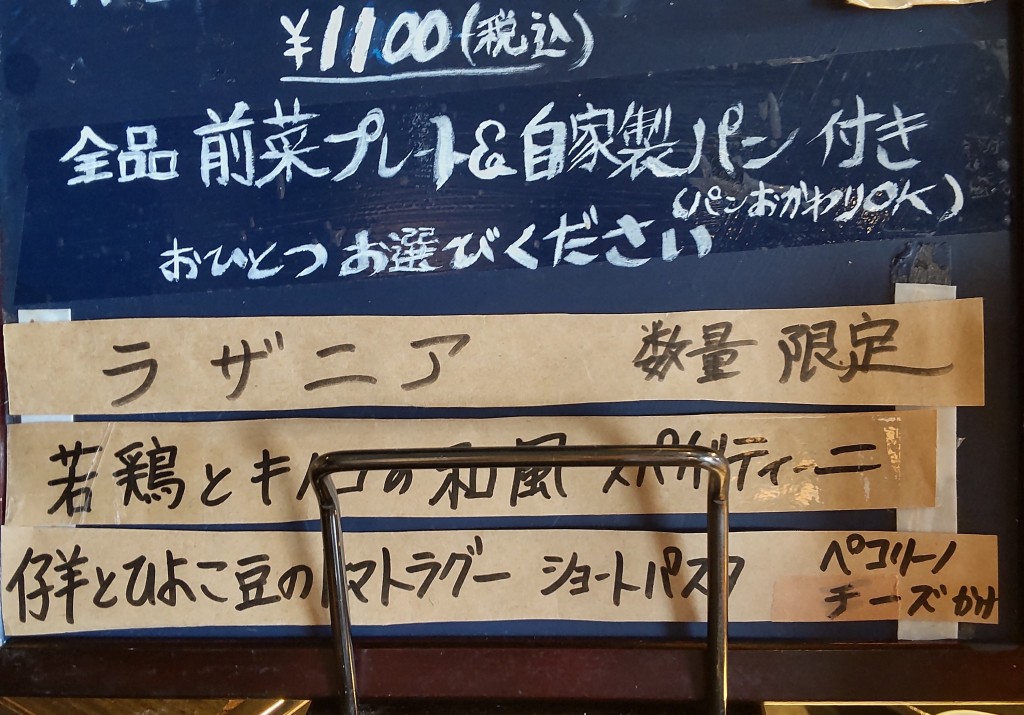 ¥1100(税込)
全品 前菜プレート&自家製パン 付き
(パンおかわりOK)
おひとつ お選びください
ラザニア 数量 限定
若鶏とキノコの和風 スパゲティーニ
仔羊とひよこ豆のトマトラグー ショートパスタ ペコリーノ
チーズかけ